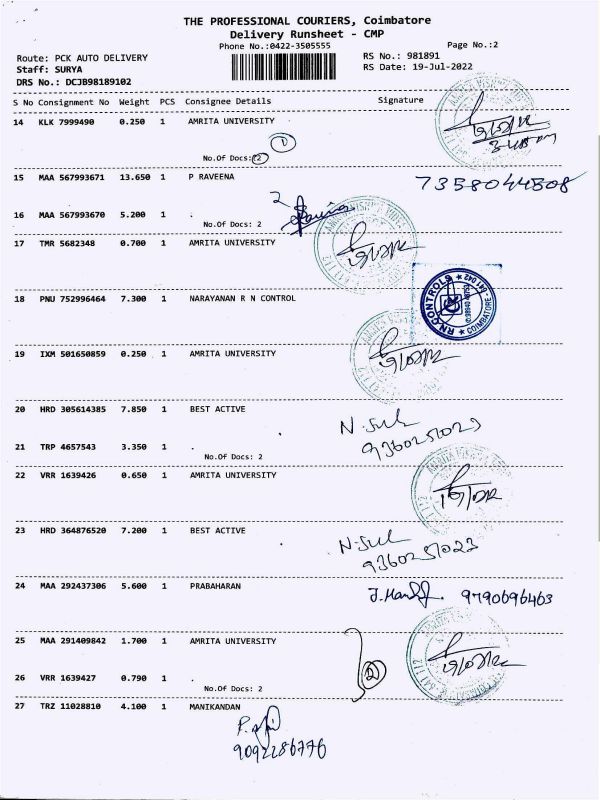 THE PROFESSIONAL COURIERS, Coimbatore
Delivery Runsheet - CMP
Phone No.:0422-3505555
Page No.:2
Route: PCK AUTO DELIVERY
RS No.: 981891
Staff: SURYA
RS Date: 19-Jul-2022
DRS No.: DCJB98189102
S No Consignment No Weight PCS Consignee Details Signature
14 KLK 7999490 0.250 1 AMRITA UNIVERSITY
No.Of Docs: 2
15 MAA 567993671 13.650 1 P RAVEENA
7358044508
2
16 MAA 567993670 5.200 1 .
No.Of Docs: 2
17 TMR 5682348 0.700 1 AMRITA UNIVERSITY
18 PNU 752996464 7.300 1 NARAYANAN R N CONTROL
RN CONTROLS * COIMBATORE - 641 042 *
19 IXM 501650859 0.250 1 AMRITA UNIVERSITY
20 HRD 305614385 7.850 1 BEST ACTIVE
9360251023
21 TRP 4657543 3.350 1 .
No.Of Docs: 2
22 VRR 1639426 0.650 1 AMRITA UNIVERSITY
23 HRD 364876520 7.200 1 BEST ACTIVE
9360251023
24 MAA 292437306 5.600 1 PRABAHARAN
9790696463
25 MAA 291409842 1.700 1 AMRITA UNIVERSITY
26 VRR 1639427 0.790 1 .
2
No.Of Docs: 2
27 TRZ 11028810 4.100 1 MANIKANDAN
9092286776